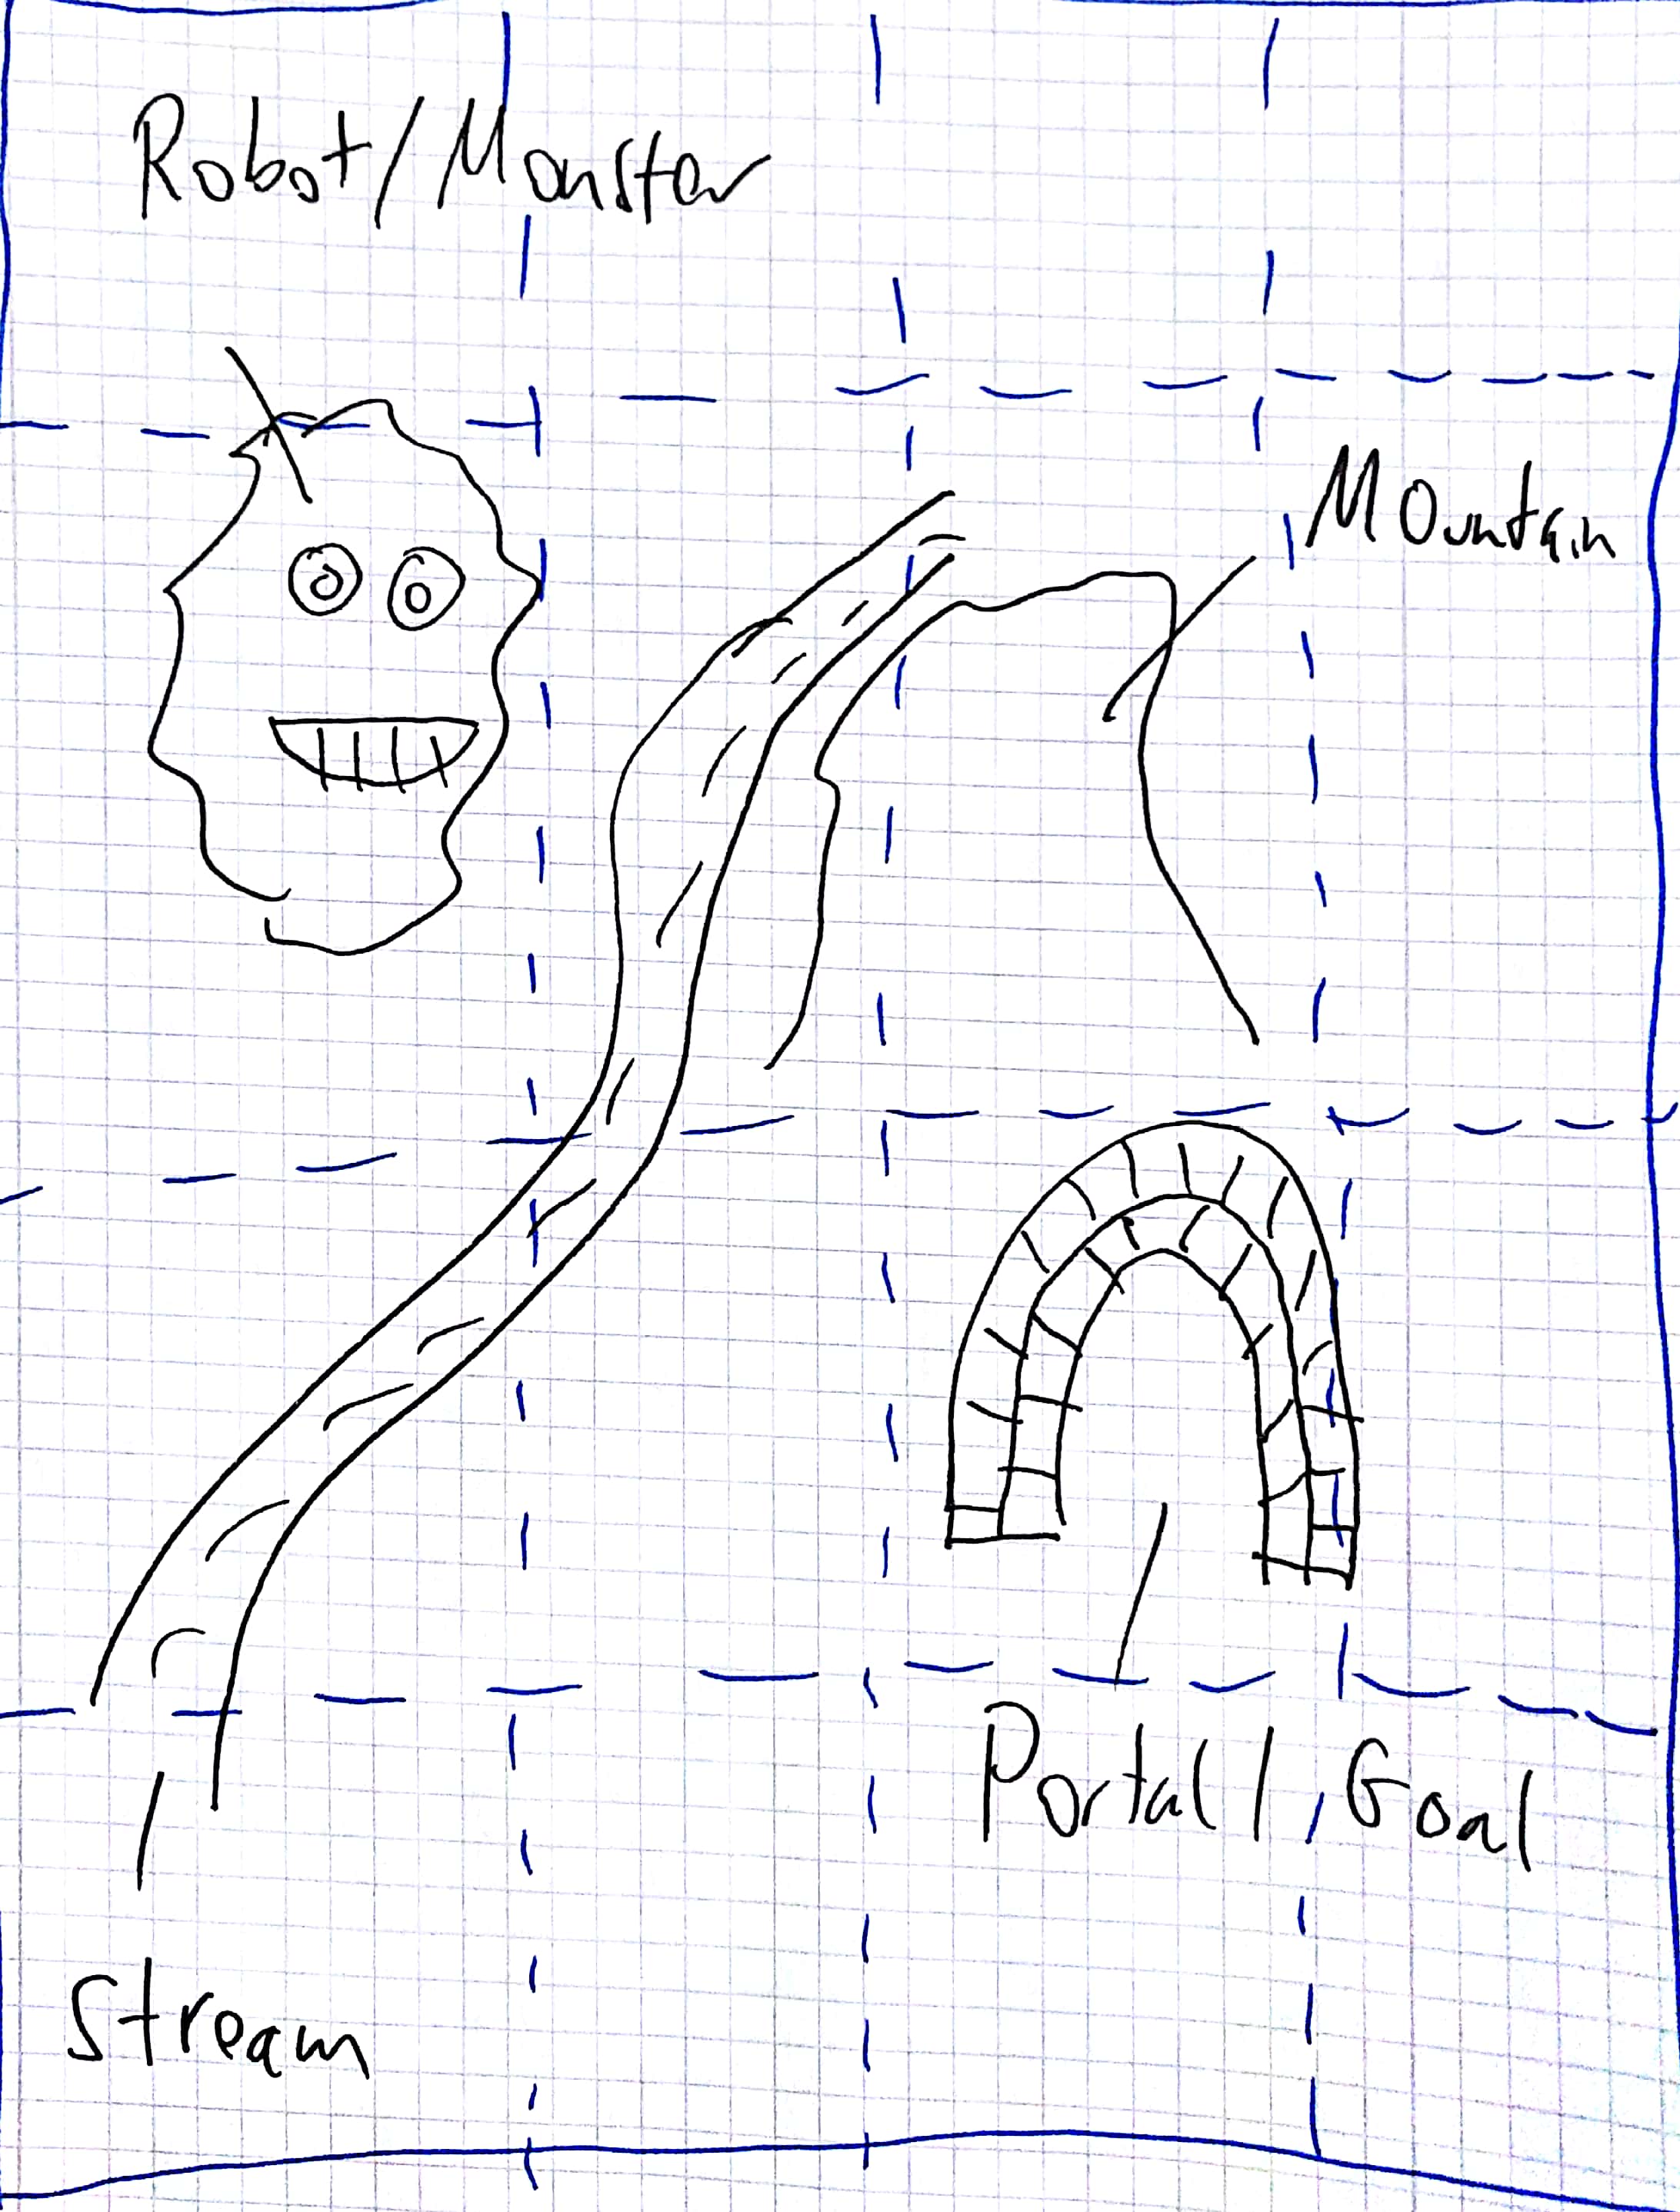 Robot/Monster
Mountain
Portal/Goal
Stream